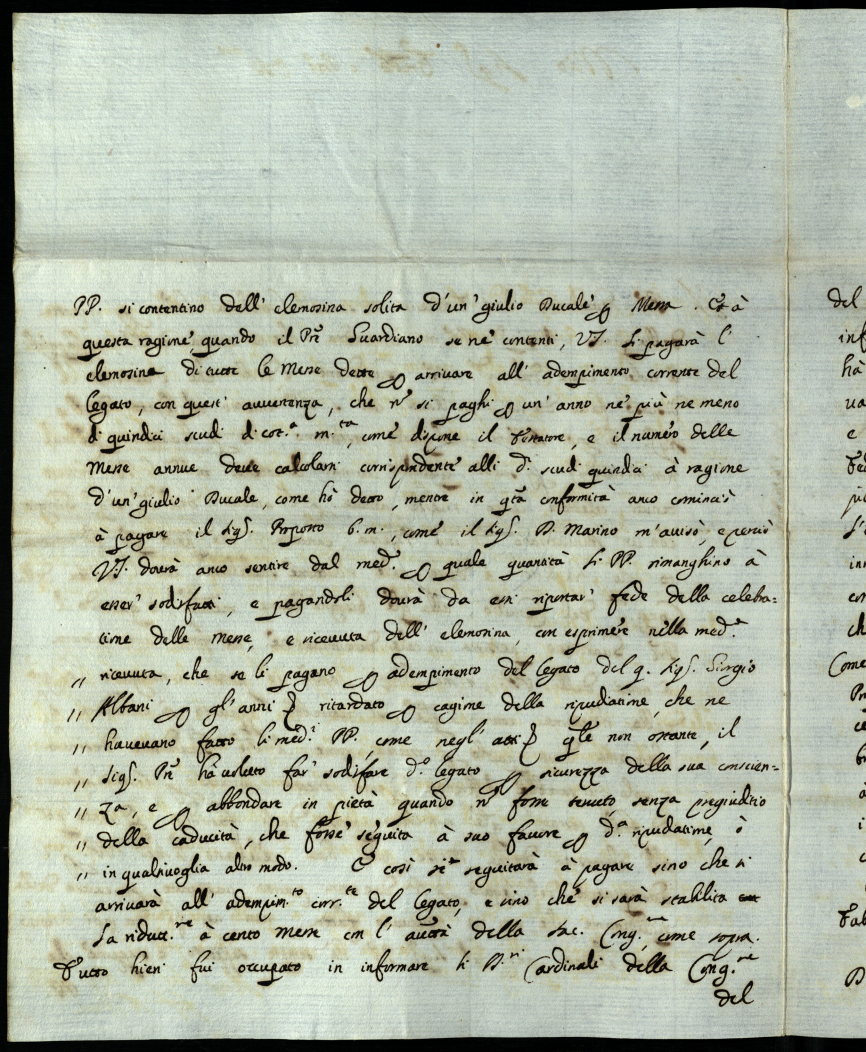 PP. si contentino dell' elemosina solita d'un' giulio Ducale p Messa. Et à
questa ragione, quando il Prẽ Guardiano se ne contenti, VS. li pagarà l'
elemosine di tutte le Messe dette p arrivare all' adempimento corrente del
legato, con quest' avvertenza, che nõ si paghi p un' anno ne più ne meno
di quindici scudi di cot.a m.ta, come dispone il Testatore, e il numero delle
Messe annue deve calcolarsi corrispondente alli d.i scudi quindici à ragione
d'un' giulio Ducale, come hò detto, mentre in qta conformità anco cominciò
à pagare il Sig.r Proposto b. m., come il Sig.r D. Marino m'avisò, e perciò
VS. dovrà anco sentire dal med.o p quale quantità li PP. rimanghino à
esser' sodisfatti, e pagandoli dovrà da essi riportar' fede della celeba=
tione delle messe, e ricevuta dell' elemosina, con esprimere nella med.a
,, ricevuta, che se li pagano p adempimento del legato del q. Sig.r Giorgio
,, Albani p gl'anni ritardato p cagione della ripudiatione, che ne
,, havevano fatto li med.i PP., come negl' atti qle non ostante, il
,, Sig.r Prẽ hà voluto far' sodisfare d.o legato p sicurezza della sua conscien=
,, za, e p abbondare in pietà quando nõ fosse tenuto, senza pregiuditio
,, della caducità, che forse seguita à suo favore p d.a ripudiatione, ò
,, in qualsivoglia altro modo. E così si seguitarà à pagare sino che si
arrivarà all' adempim.to corr.te del legato, e sino che si sarà stabilita
la ridut.ne à cento messe con l' autta della Sac. Cong.ne come sopra.
Tutto hieri fui occupato in informare li S.ri Cardinali della Cong.ne
del
del
inf
hà
ua
e